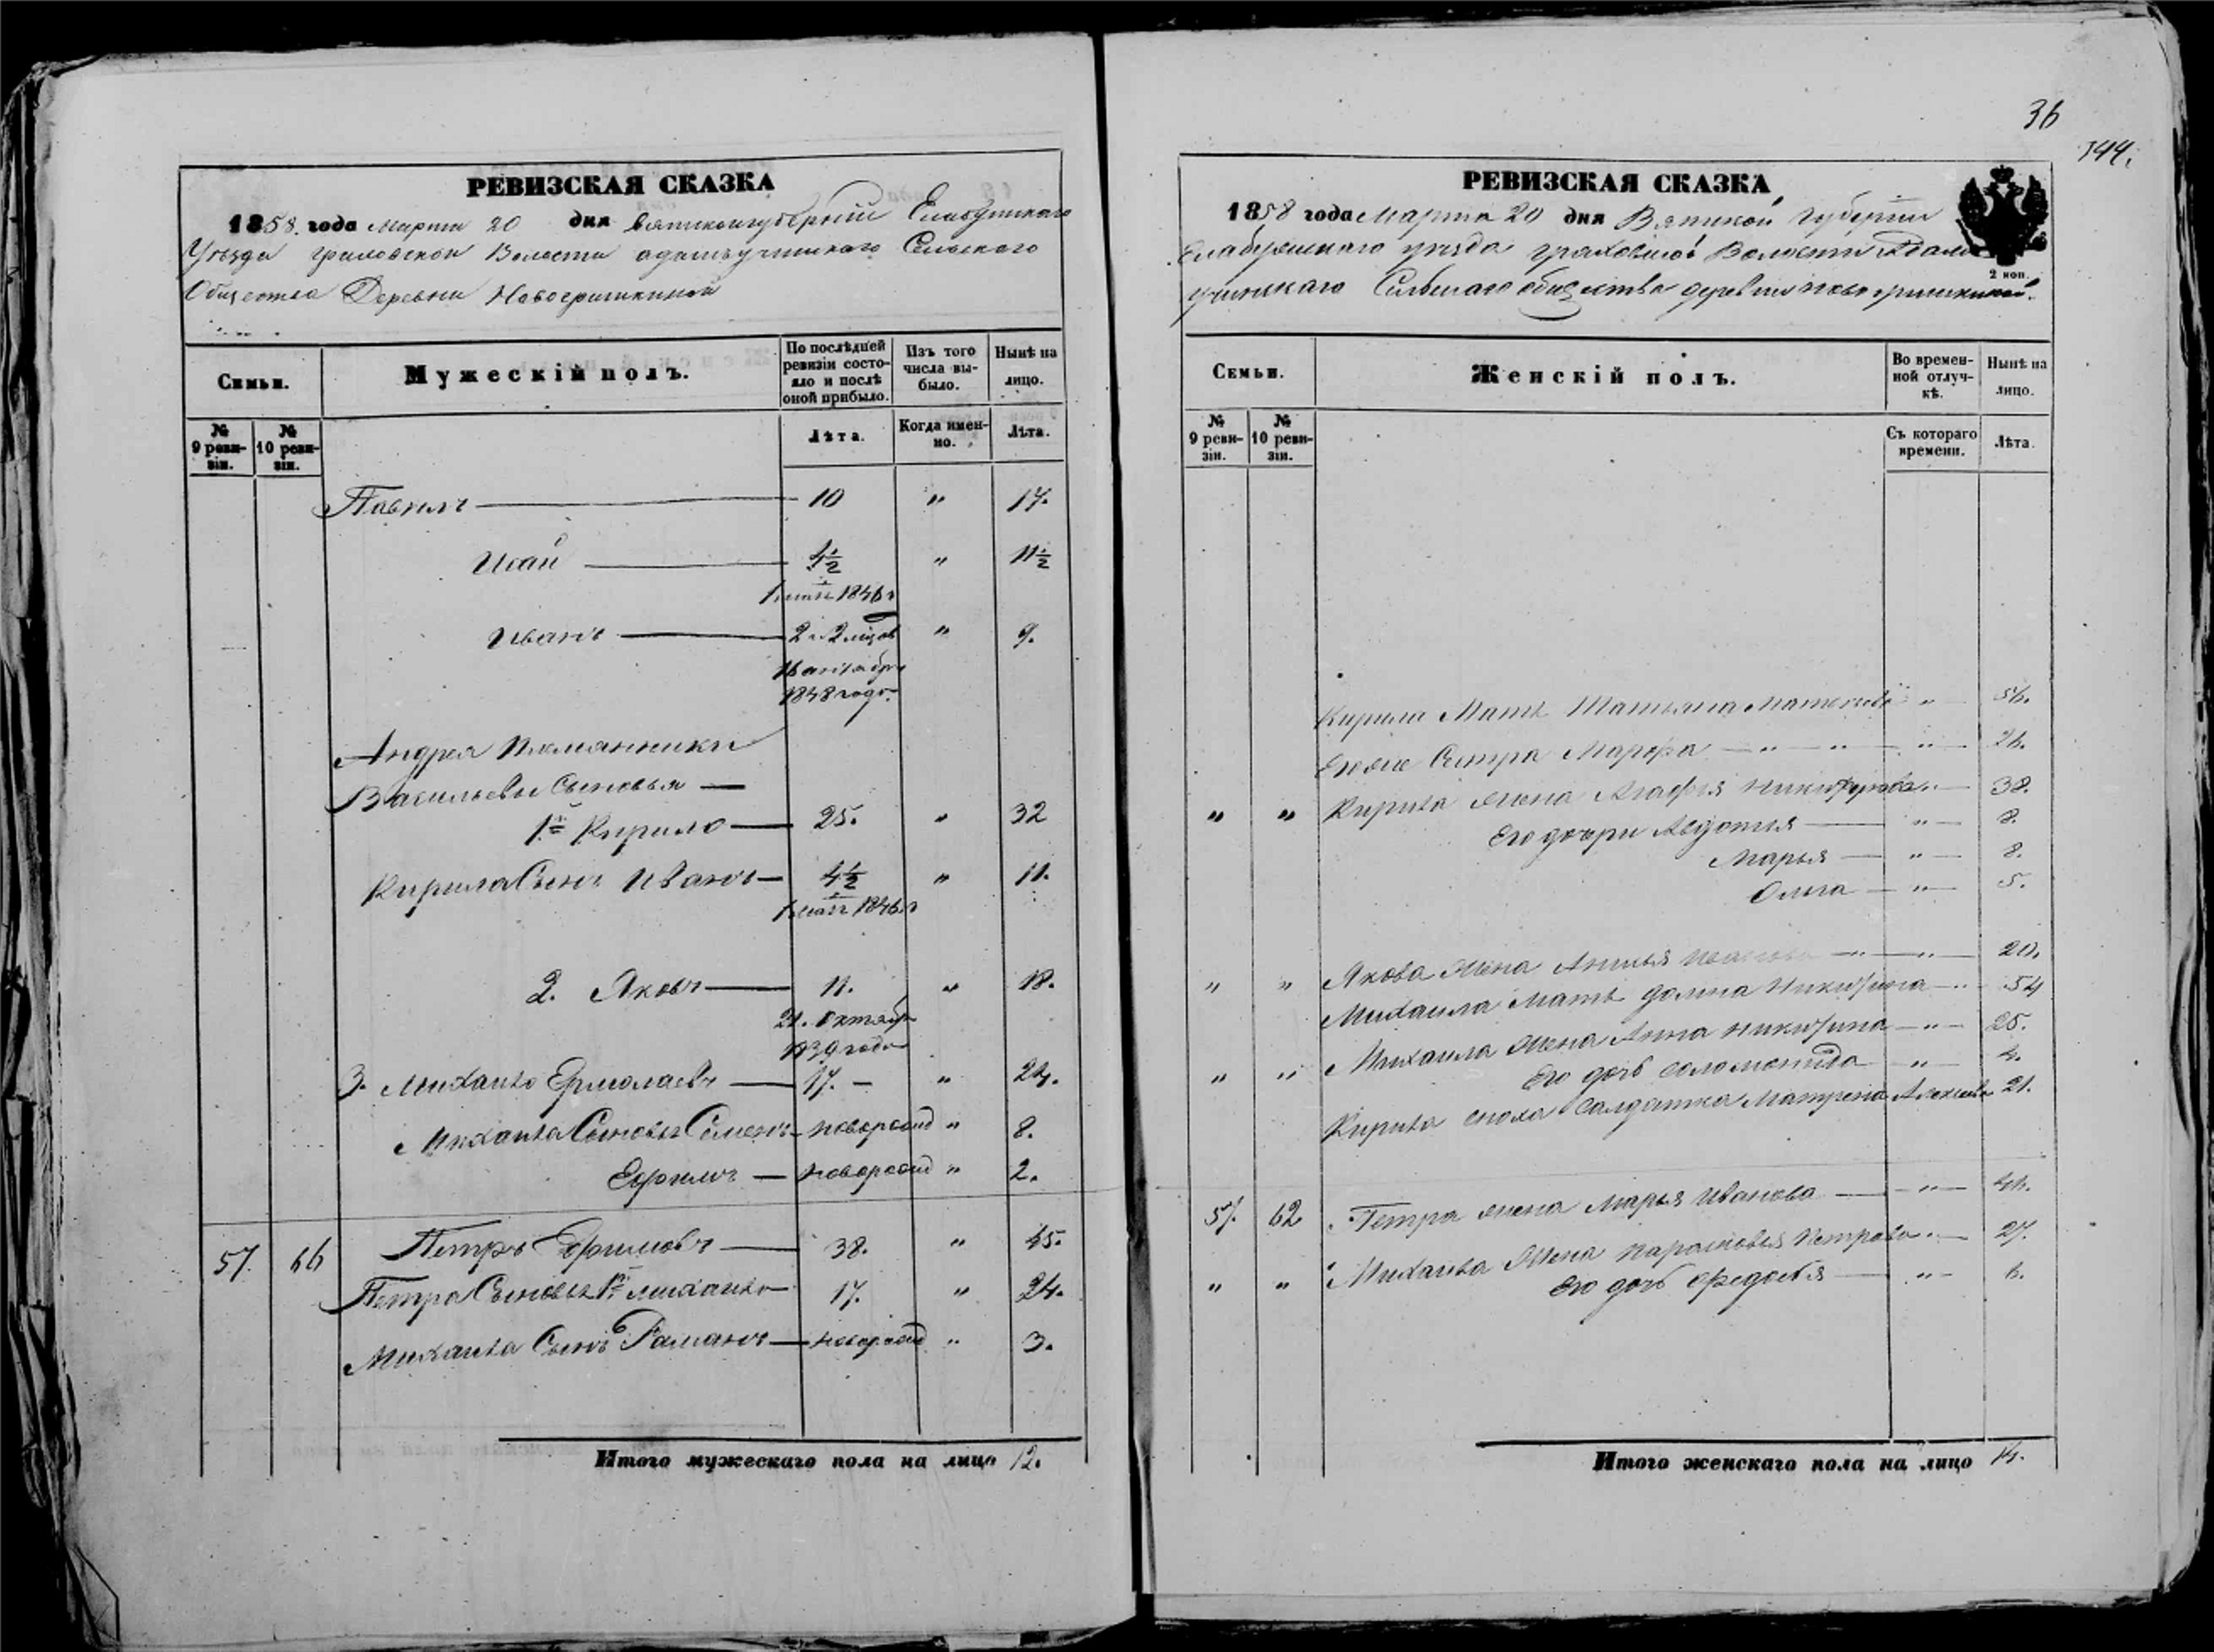 РЕВИЗСКАЯ СКАЗКА
1858. года Марта 20 дня Вятской губерніи Елабужскаго
Уѣзда Граховской Волости адамъучинскаго Сельскаго
Общества Деревни Новогришкиной
Семьи.
Мужескій полъ.
По послѣдней ревизіи состояло и послѣ оной прибыло.
Изъ того числа выбыло.
Нынѣ на лицо.
№ 9 ревизіи.
№ 10 ревизіи.
Лѣта.
Когда именно.
Лѣта.
Павилъ 10 " 17.
Исай 4½ " 11½
1846
Иванъ 2 " 9.
1848 года
Андрея племянники
Васильевы Сыновья
1й Кирило 25. " 32
Кирила Сынъ Иванъ 4½ " 11.
1846
2. Яковъ 11. " 18.
21. Октяб
1839 года
3. Михаило Ермолаевъ 17. " 24.
Михаила Сыновья Семенъ новорожд " 8.
Ефимъ новорожд " 2.
57. 66 Петръ Ефимовъ 38. " 45.
Петра Сыновья 1й михаило 17. " 24.
Михаила Сынъ Раманъ новорожд " 3.
Итого мужескаго пола на лицо 12.
36
144.
РЕВИЗСКАЯ СКАЗКА
1858 года Марта 20 дня Вятской губерніи
Елабужскаго уѣзда граховской Волости Адам
учинскаго Сельскаго общества деревни новогришкиной.
2 коп.
Семьи.
Женскій полъ.
Во временной отлучкѣ.
Нынѣ на лицо.
№ 9 ревизіи.
№ 10 ревизіи.
Съ котораго времени.
Лѣта.
Кирила Мать Татьяна " 56.
Егоже Сестра Марфа " " " 26.
" " Кирила жена Агафья Никифорова " 38.
Его дочери Авдотья " 8.
Марья " 8.
Ольга " 5.
" " Якова жена Анисья " " 20.
Михаила Мать Никитина " 54
" " Михаила жена Анна никитина " 25.
Его дочь соломонида " 4.
Кирила сноха Салдатка Матрена Алексеева 21.
57. 62 Петра жена Марья Иванова " 46.
" " Михаила Жена парасковья Петрова " 27.
Его дочь Федосья " 6.
Итого женскаго пола на лицо 14.